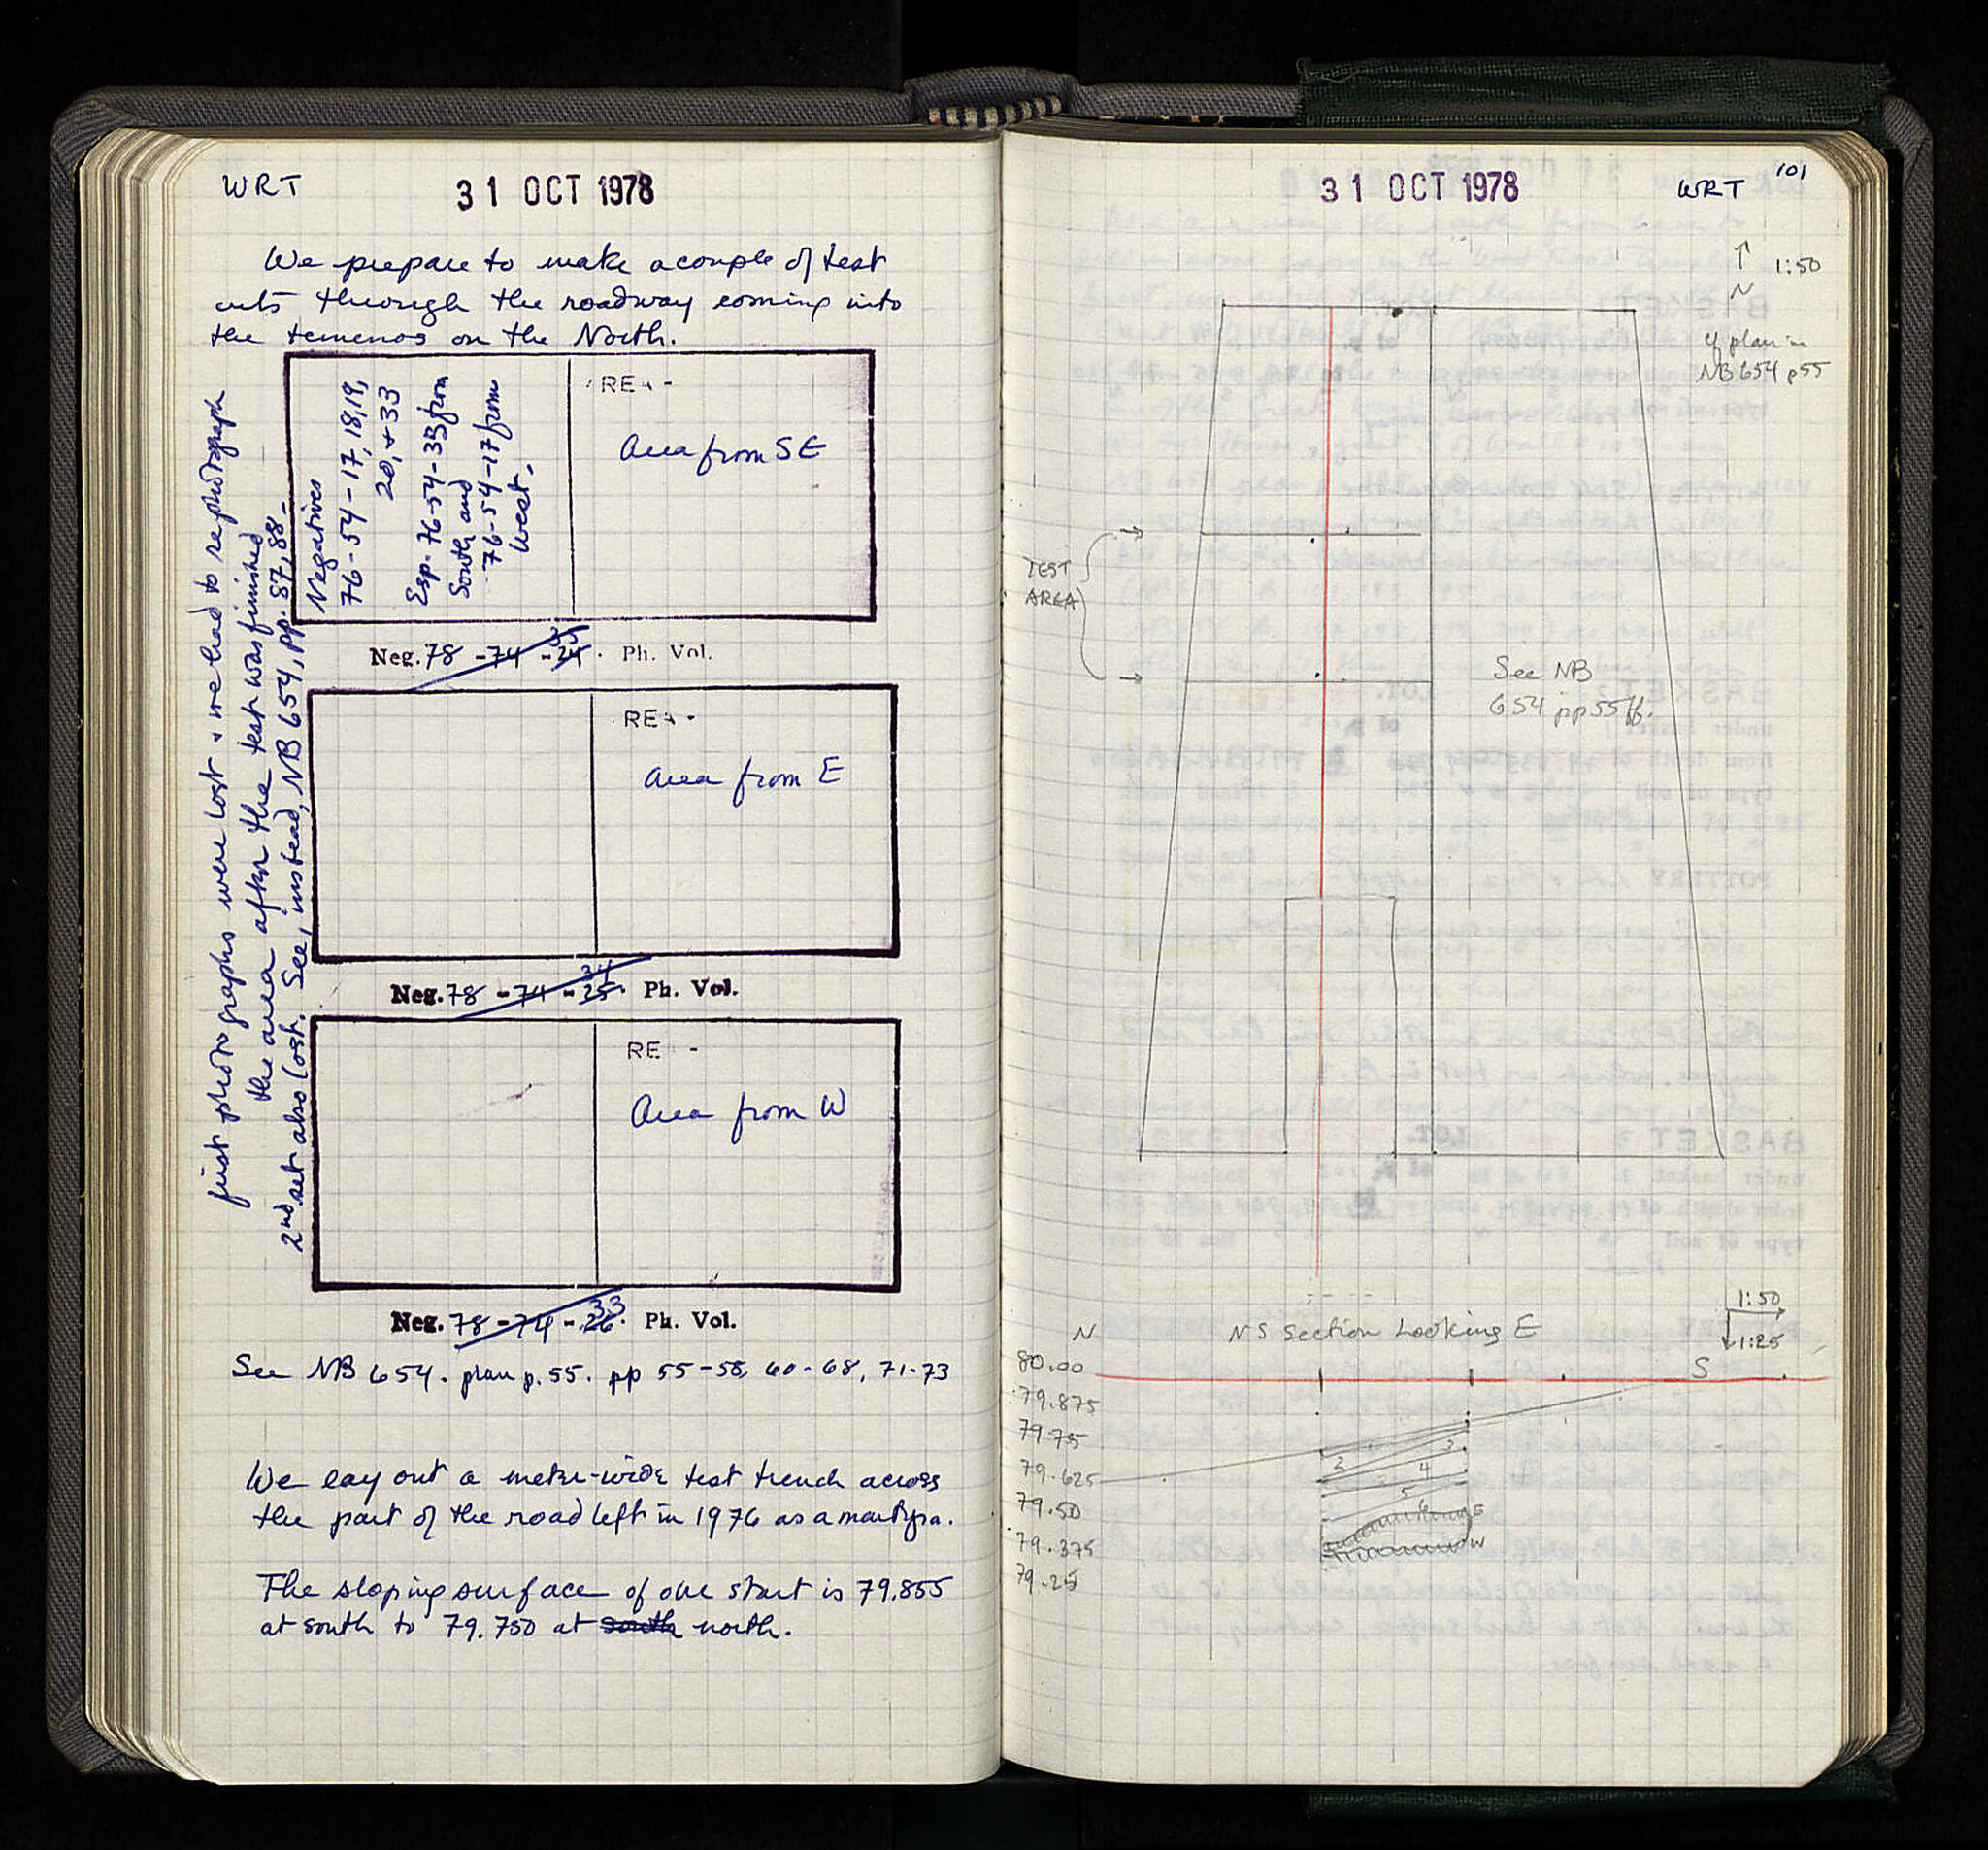 WRT
31 OCT 1978
We prepare to make a couple of test
cuts through the roadway coming into
the temenos on the North.
first photographs were lost + we had to rephotograph
the area after the test was finished
2nd set also lost. See, instead, NB 654, pp. 87, 88-
Negatives
76-54-17, 18, 19,
20, + 33
Esp. 76-54-33 from
South and
76-54-17 from
West.
AREA-
Area from SE
Neg. 78 -74 -24 35. Ph. Vol.
AREA-
Area from E
Neg. 78 -74 -25 34. Ph. Vol.
AREA-
Area from W
Neg. 78 -74 -26 33. Ph. Vol.
See NB 654. plan p. 55. pp 55-58, 60-68, 71-73
We lay out a meter-wide test trench across
the part of the road left in 1976 as a martyra.
The sloping surface of our start is 79.855
at south to 79.750 at south north.
31 OCT 1978
WRT
101
N
1:50
cf plan in
NB 654 p 55
TEST
AREA
See NB
654 pp 55 ff.
1:50
1:25
N
NS Section Looking E
S
80.00
79.875
79.75
79.625
79.50
79.375
79.25
2
3
4
5
6
E
W